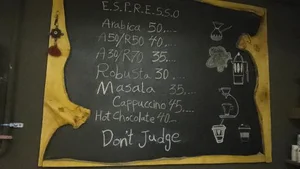 E.S.P.R.E.S.S.O
Arabica 50....
A50/R50 40...
A30/R70 35....
Robusta 30....
Masala 35....
Cappuccino 45....
Hot Chocolate 40...
Don't Judge